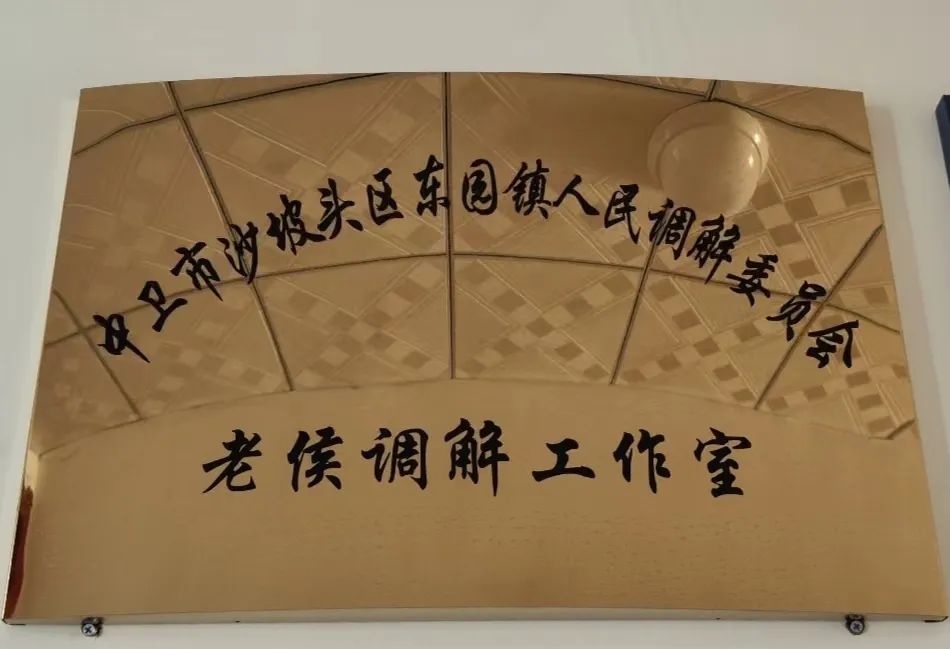 中卫市沙坡头区东园镇人民调解委员会
老侯调解工作室